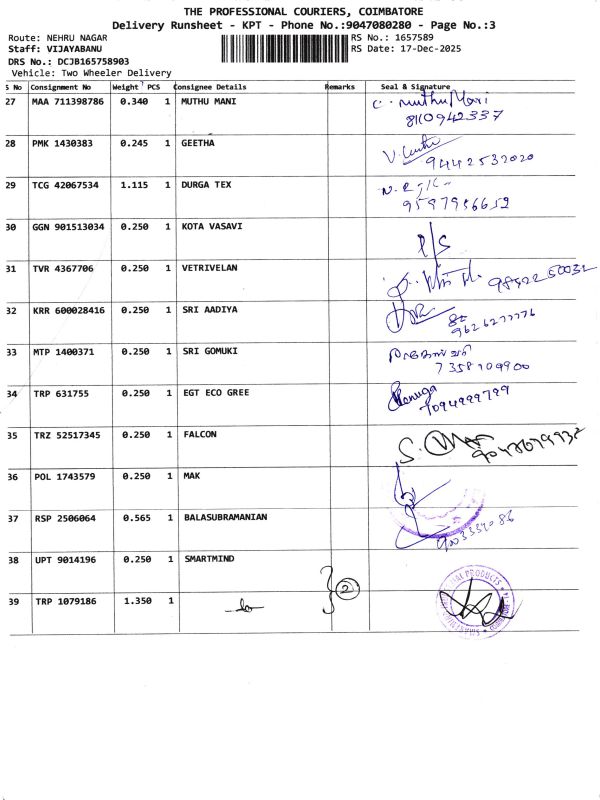 THE PROFESSIONAL COURIERS, COIMBATORE
Delivery Runsheet - KPT - Phone No.:9047080280 - Page No.:3
Route: NEHRU NAGAR RS No.: 1657589
Staff: VIJAYABANU RS Date: 17-Dec-2025
DRS No.: DCJB165758903
Vehicle: Two Wheeler Delivery
S No Consignment No Weight PCS Consignee Details Remarks Seal & Signature
27 MAA 711398786 0.340 1 MUTHU MANI C. Muthu Mani
8110942337
28 PMK 1430383 0.245 1 GEETHA
9442532020
29 TCG 42067534 1.115 1 DURGA TEX
9597956652
30 GGN 901513034 0.250 1 KOTA VASAVI P/S
31 TVR 4367706 0.250 1 VETRIVELAN
32 KRR 600028416 0.250 1 SRI AADIYA
9626277776
33 MTP 1400371 0.250 1 SRI GOMUKI
7358109900
34 TRP 631755 0.250 1 EGT ECO GREE Renuga
7094999799
35 TRZ 52517345 0.250 1 FALCON
36 POL 1743579 0.250 1 MAK
37 RSP 2506064 0.565 1 BALASUBRAMANIAN
38 UPT 9014196 0.250 1 SMARTMIND
39 TRP 1079186 1.350 1 2